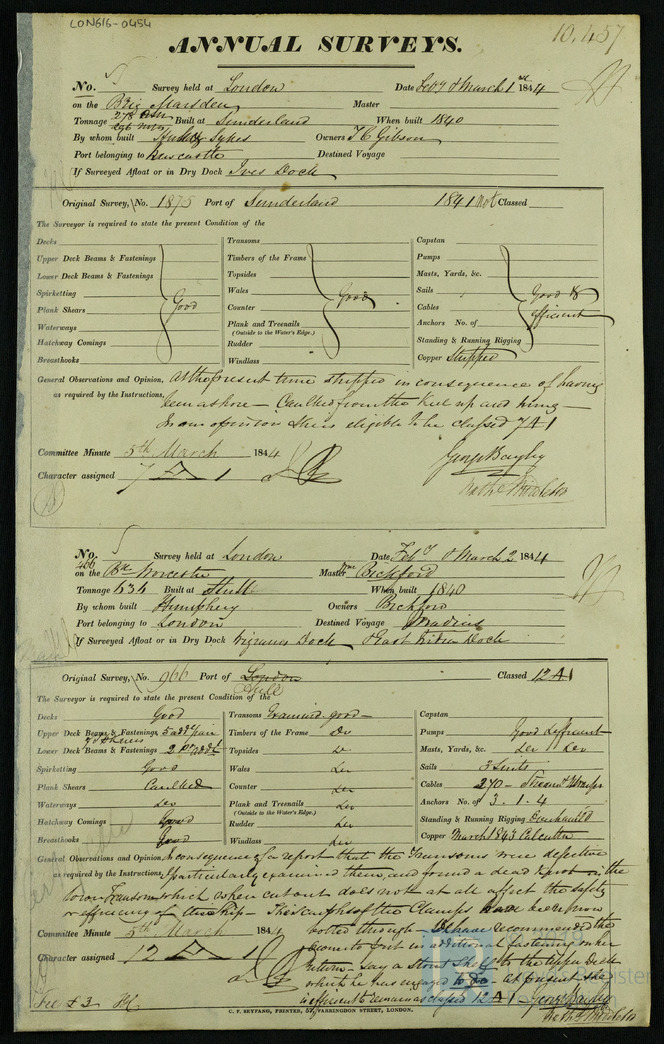 LON616-0454
10,457
ANNUAL SURVEYS.
No. Survey held at London Date Feby & March 1st 1844
on the Brig Marsden Master
Tonnage 278 Built at Sunderland When built 1840
By whom built Sykes Owners T C Gibson
Port belonging to Newcastle Destined Voyage
If Surveyed Afloat or in Dry Dock Ives Dock
Original Survey, No. 1875 Port of Sunderland 1841 Not Classed
The Surveyor is required to state the present Condition of the
Decks Transoms Capstan
Upper Deck Beams & Fastenings Timbers of the Frame Pumps
Lower Deck Beams & Fastenings Topsides Masts, Yards, &c.
Spirketting Wales Sails Good &
Plank Shears Good Counter Good Cables efficient
Waterways Plank and Treenails Anchors No. of
(Outside to the Water's Edge.)
Hatchway Comings Rudder Standing & Running Rigging
Breasthooks Windlass Copper Stripped
General Observations and Opinion, at the present time stripped in consequence of having
as required by the Instructions, been ashore – Caulked from the Keel up and
In our opinion she is eligible to be classed 7 A 1
Committee Minute 5th March 1844 George Bayley
Character assigned 7 A 1
No. Survey held at London Date Feby & March 2 1844
466 on the Worcester Master Wm Bickford
Tonnage 636 Built at Hull When built 1840
By whom built Humphery Owners Bickford
Port belonging to London Destined Voyage Madras
If Surveyed Afloat or in Dry Dock Wigrams Dock & East India Dock
Original Survey, No. 966 Port of London Classed 12 A 1
Hull
The Surveyor is required to state the present Condition of the
Decks Good Transoms Examined good Capstan
Upper Deck Beams & Fastenings 5 addl pair Timbers of the Frame Do Pumps Good & efficient
Lower Deck Beams & Fastenings 2 pr addl Topsides Do Masts, Yards, &c. Do Do
Spirketting Good Wales Do Sails 3 Suits
Plank Shears Caulked Counter Do Cables 270
Waterways Do Plank and Treenails Do Anchors No. of 3. 1. 4
(Outside to the Water's Edge.)
Hatchway Comings Good Rudder Do Standing & Running Rigging
Breasthooks Good Windlass Do Copper March 1843 Calcutta
General Observations and Opinion, In consequence of a report that the Transoms were defective
as required by the Instructions, I particularly examined them, and found a dead knot in the
Transom which when cut out does not at all affect the safety
or efficiency of the Ship – The scarphs of the Clamps have been
bolted through – I have recommended the
Committee Minute 5th March 1844
to put in additional fastening on her
Character assigned 12 A 1
return – say a stout Shelf to the upper Deck
which he has engaged to do – at present she
is efficient to remain as classed 12 A 1 – George Bayley
Fee £3
C. F. SEYFANG, PRINTER, 57, FARRINGDON STREET, LONDON.